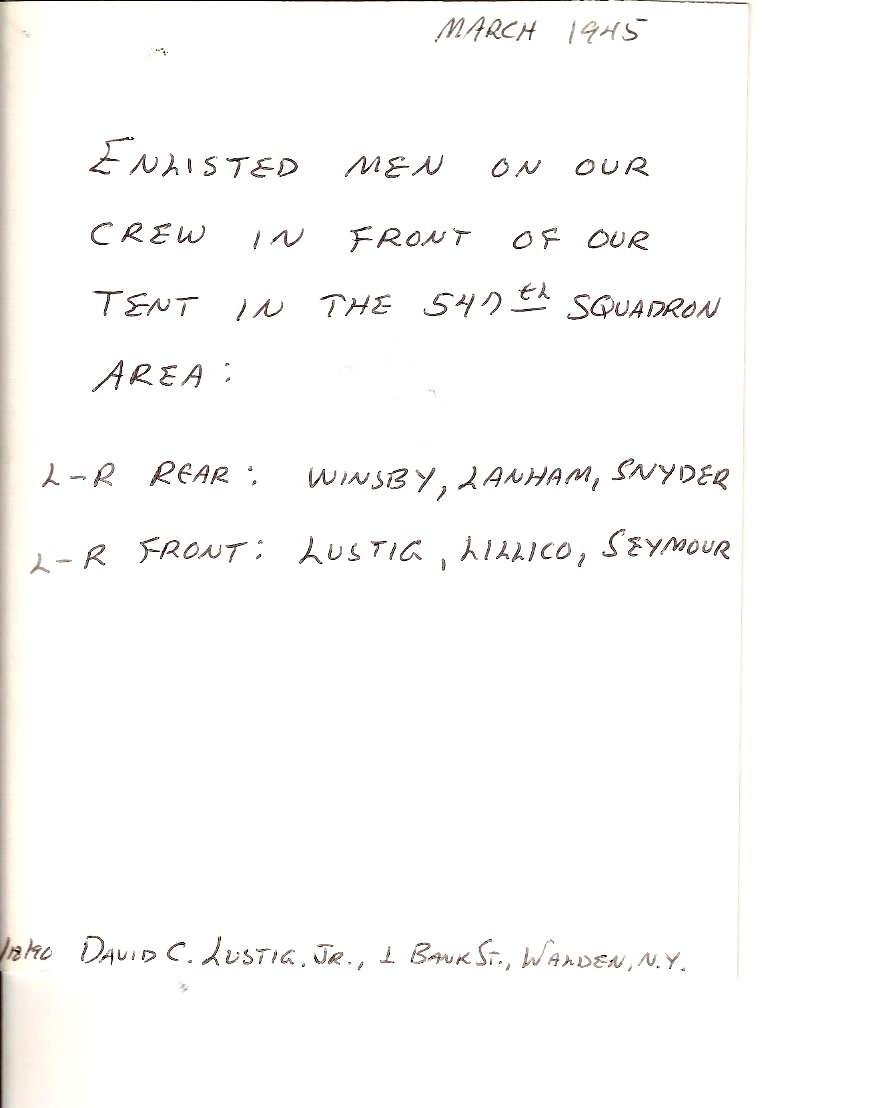 MARCH 1945
ENLISTED MEN ON OUR
CREW IN FRONT OF OUR
TENT IN THE 547th SQUADRON
AREA:
L-R REAR: WINSBY, LANHAM, SNYDER
L-R FRONT: LUSTIG, LILLICO, SEYMOUR
DAVID C. LUSTIG, JR., 1 BANK ST., WALDEN, N.Y.